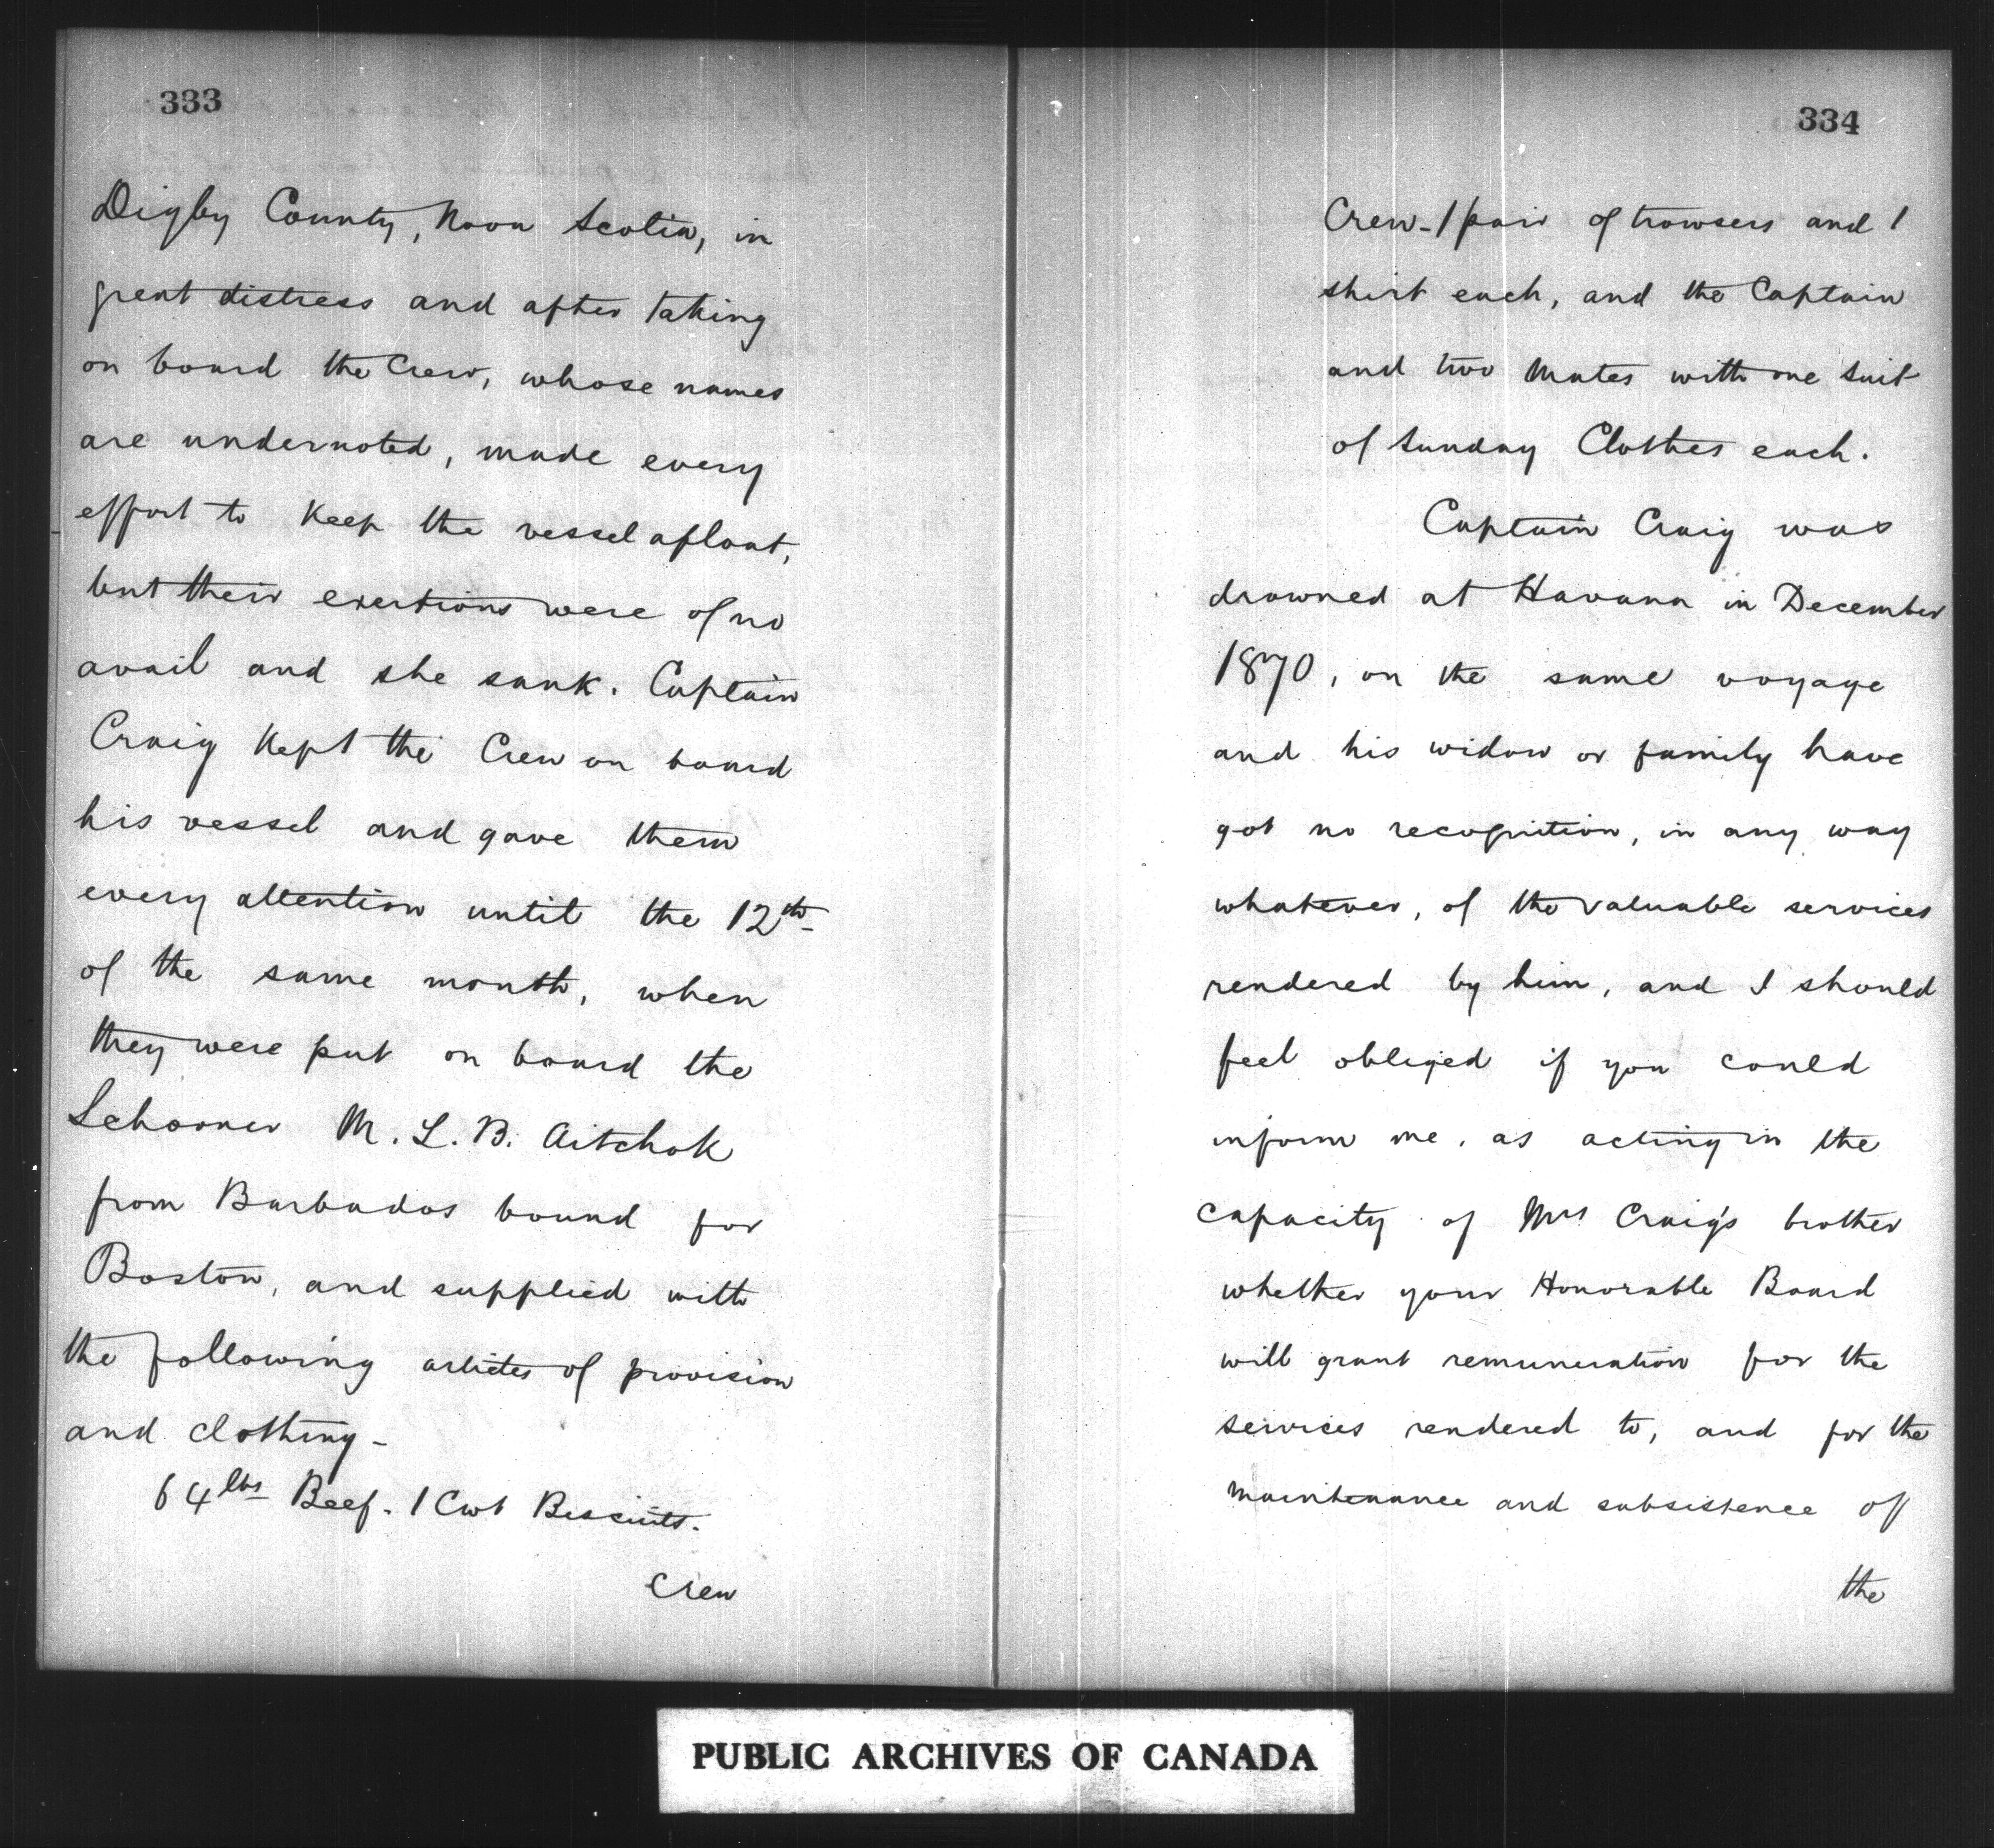 333
Digby County, Nova Scotia, in
great distress and after taking
on board the Crew, whose names
are undernoted, made every
effort to keep the vessel afloat,
but their exertions were of no
avail and she sank. Captain
Craig kept the Crew on board
his vessel and gave them
every attention until the 12th
of the same month, when
they were put on board the
Schooner M. L. B. Aitchok
from Barbados bound for
Boston, and supplied with
the following articles of provision
and clothing -
64 lbs Beef. 1 Cwt Biscuits.
Crew
334
Crew - 1 pair of trowsers and 1
shirt each, and the Captain
and two Mates with one suit
of Sunday Clothes each.
Captain Craig was
drowned at Havana in December
1870, on the same voyage
and his widow or family have
got no recognition, in any way
whatever, of the valuable services
rendered by him, and I should
feel obliged if you could
inform me, as acting in the
capacity of Mrs Craig's brother
whether your Honorable Board
will grant remuneration for the
services rendered to, and for the
maintenance and subsistence of
the
PUBLIC ARCHIVES OF CANADA